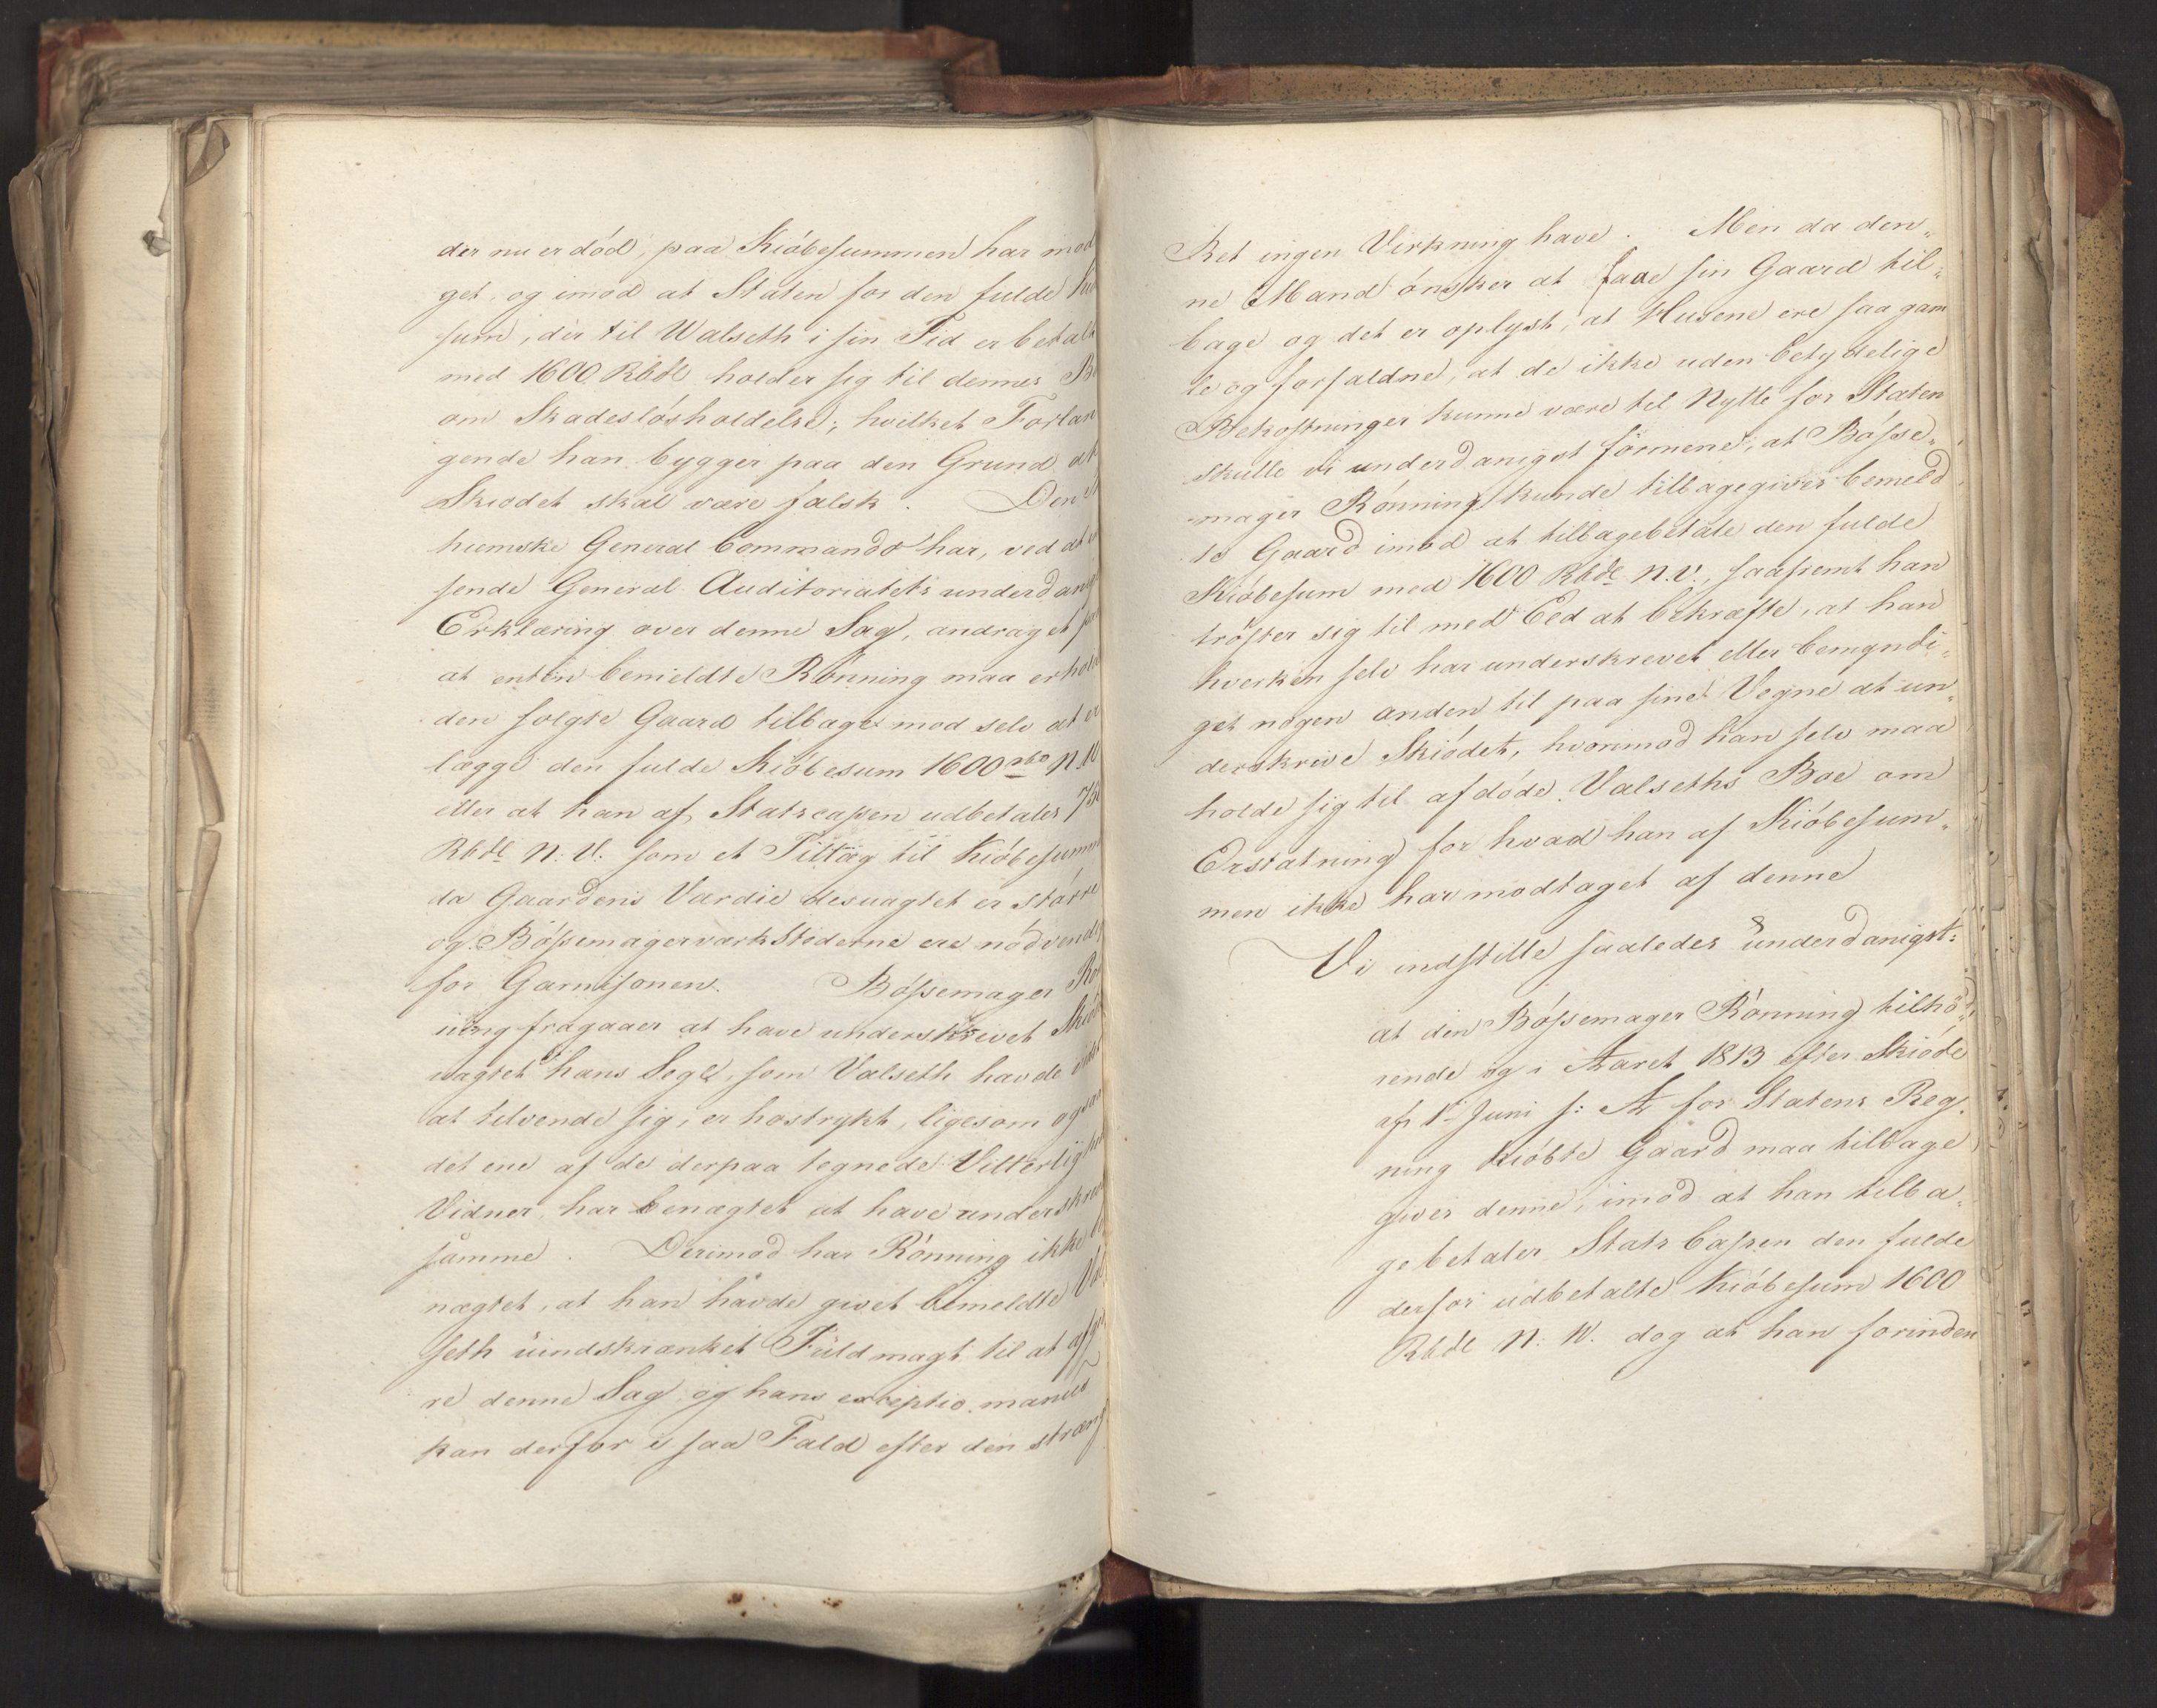 der nu er död, paa Kiöbesummen har mod
get, og imod at Staten for den fulde Kiö
sum, der til Walseth i sin Tid er betalt
med 1600 Rbdl holder sig til dennes Bo
om Skadeslösholdelse; hvilket Forlan
gende han bygger paa den Grund at
Skiödet skal være falsk. Den
hiemske General Commando har, ved at
sende General Auditoriatets underdanig
Erklæring over denne Sag, andraget paa
at enten bemeldte Rönning maa erhold
den solgte Gaard tilbage mod selv at er
lægge den fulde Kiöbesum 1600 rbd N.W
eller at han af Statscassen udbetales 750
Rbdl N: V. som et Tillæg til Kiöbesumm
da Gaardens Værdie desuagtet er större
og Bössemagerværkstæderne ere nödvendi
for Garnisonen. Bössemager Rön
ning fragaaer at have underskrevet Skiöd
uagtet hans Segl, som Valseth havde vidst
at tilvende sig, er hostrykt, ligesom ogsaa
det ene af de derpaa tegnede Vitterlighed
Vidner har benægtet at have underskrev
samme. Derimod har Rönning ikke be
nægtet, at han havde givet bemeldte Val
seth uindskrænket Fuldmagt til at afgiö
re denne Sag og hans exceptio manus
kan derfor i saa Fald efter den stræng
Ret ingen Virkning have. Men da den„
ne Mand önsker at faae sin Gaard til„
bage og det er oplyst, at Husene ere saa gam
le og forfaldne, at de ikke uden betydelige
Bekostninger kunne være til Nytte for Staten
skulle vi underdanigst formene, at Bösse„
mager Rönning kunde tilbagegives bemeld
te Gaard imod at tilbagebetale den fulde
Kiöbesum med 1600 Rbdl N.V., saafremt han
tröster sig til med Eed at bekræfte, at han
hverken selv har underskrevet eller bemyndi„
get nogen anden til paa sine Vegne at un„
derskrive Skiödet, hvorimod han selv maa
holde sig til afdöde Valseths Boe om
Erstatning for hvad han af Kiöbesum„
men ikke har modtaget af denne
Vi indstille saaledes underdanigst:
at den Bössemager Rönning tilhö„
rende og i Aaret 1813 efter Skiöde
af 1t Juni s: A for Statens Reg„
ning kiöbte Gaard maa tilbage
gives denne, imod at han tilba„
gebetaler Stats Cassen den fulde
derfor udbetalte Kiöbesum 1600
Rbdl N: W. dog at han forinden